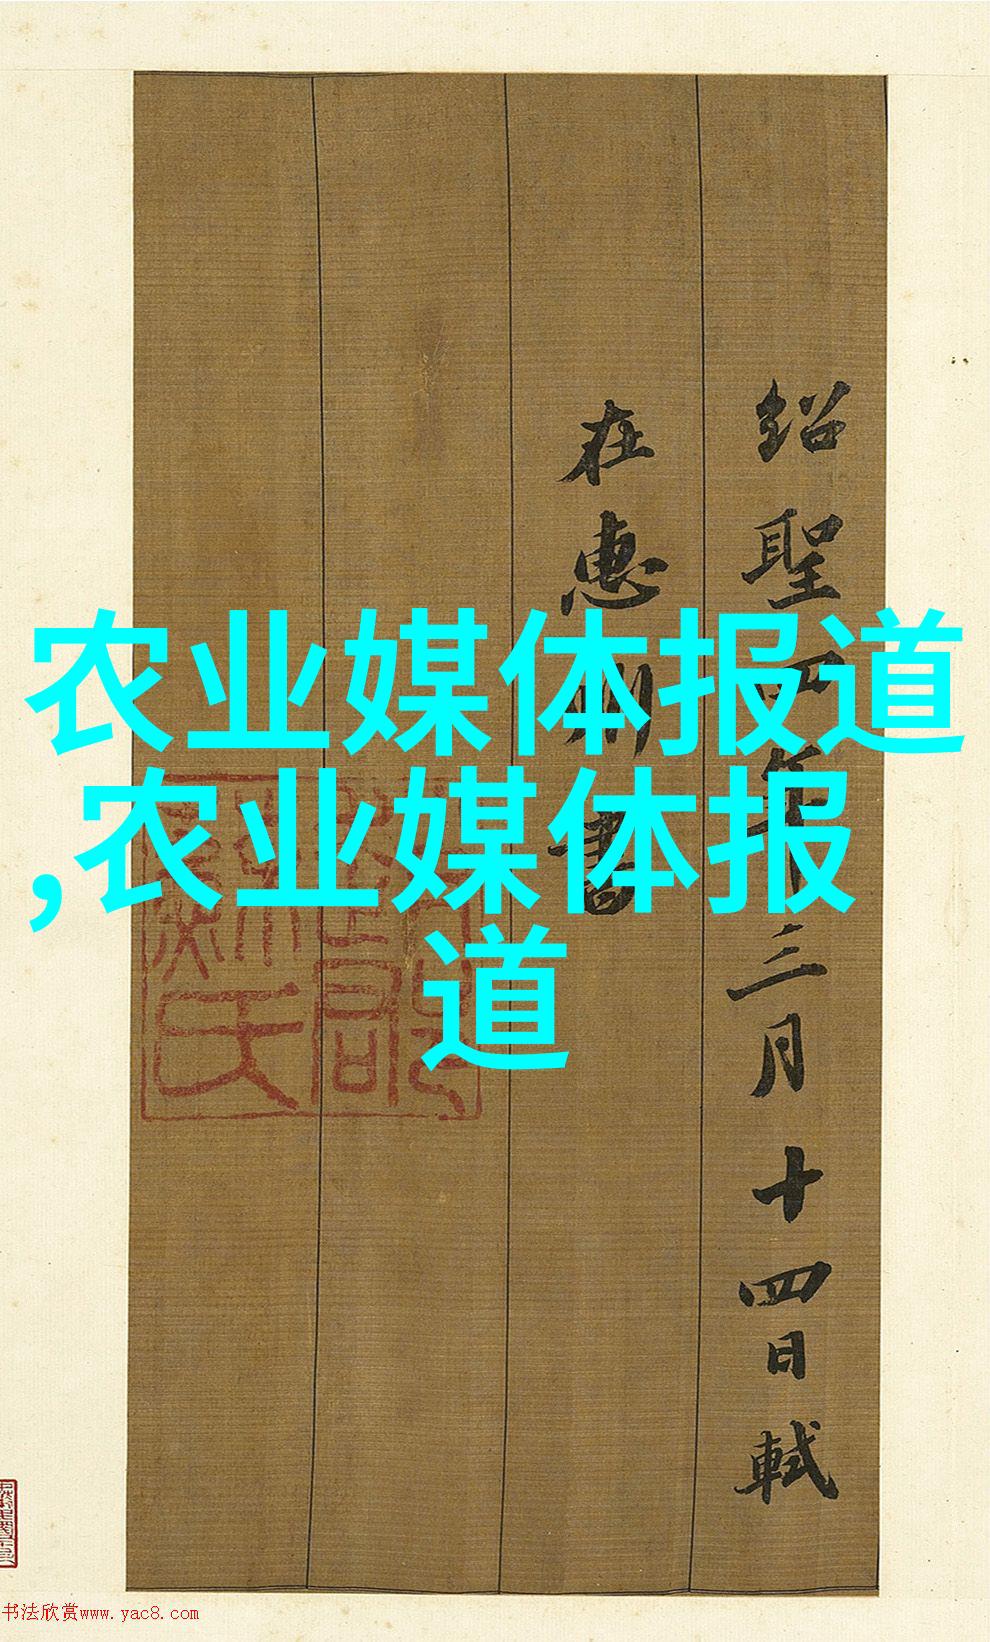 农业媒体报道
,农业媒体报
道
绍聖四年三月十四日軾
在惠州書
书法欣赏www.yac8.com